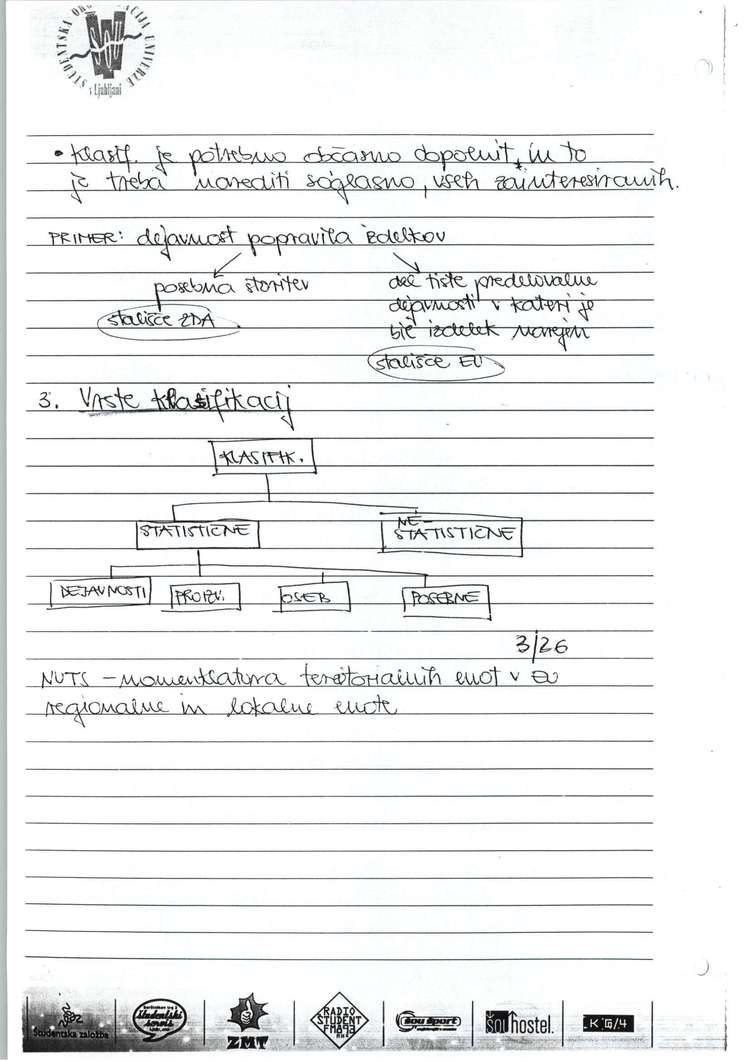 ŠTUDENTSKA ORGANIZACIJA UNIVERZE
ŠOU
v Ljubljani
• klasif. je potrebno občasno dopolnit, in to
je treba narediti soglasno, vseh zainteresiranih.
PRIMER: dejavnost popravila izdelkov
posebna storitev
stališče ZDA
del tiste predelovalne
dejavnosti v kateri je
bil izdelek narejen
stališče EU
3. Vrste klasifikacij
KLASIFIK.
STATISTIČNE
NE-
STATISTIČNE
DEJAVNOSTI
PROIZV.
OSEB
POSEBNE
3/26
NUTS – nomenklatura teritorialnih enot v EU
regionalne in lokalne enote
Študentska založba
študentski
servis
ZMT
RADIO
STUDENT
šou šport
šou hostel.
K G/4